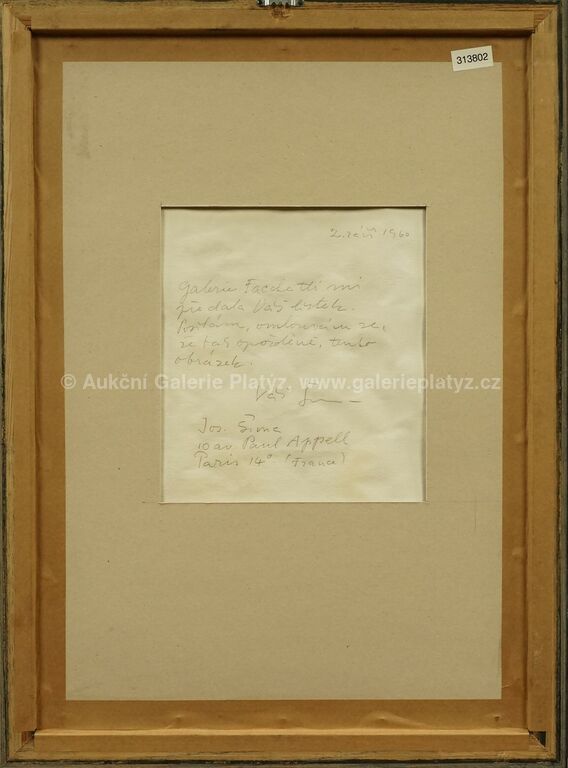 313802
2. září 1960
Galerie Facchetti mi
předala Váš lístek.
Posílám, omlouvám se,
že tak opožděně, tento
obrázek.
© Aukční Galerie Platýz, www.galerieplatyz.cz
Váš Šíma
Jos. Šíma
10 av Paul Appell
Paris 14° (France)